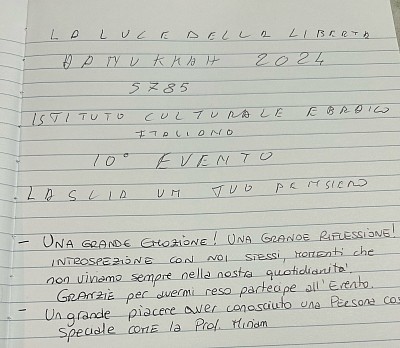 LA LUCE DELLA LIBERTA
HANUKKAH 2024
5785
ISTITUTO CULTURALE EBRAICO
ITALIANO
10° EVENTO
LASCIA UN TUO PENSIERO
- UNA GRANDE EMOZIONE! UNA GRANDE RIFLESSIONE!
INTROSPEZIONE CON NOI STESSI, MOMENTI che
non viviamo sempre nella nostra quotidianità.
GRAZIE per avermi reso partecipe all'Evento.
- Un grande piacere aver conosciuto una Persona cos
Speciale come la Prof. Miriam